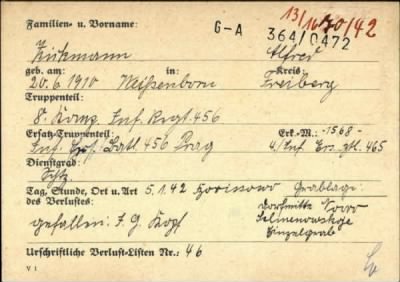 13/16 70/42
Familien- u. Vorname: G-A 364/0472
Kükmann Alfred
geb. am: in: Kreis:
20.6.1910 Weißenborn Freiberg
Truppenteil:
8. Komp. Inf. Regt. 456
Ersatz-Truppenteil: Erk.-M.: -1568-
Inf. Ers. Batl. 456 Prag 4/Inf. Ers. Btl. 465
Dienstgrad:
Schtz.
Tag, Stunde, Ort u. Art 5.1.42 Borissowo Grablage:
des Verlustes: Dorfmitte Nowo
gefallen: I.G. Kopf Selinenowskoje
Einzelgrab
Urschriftliche Verlust-Listen Nr.: 46
V 1